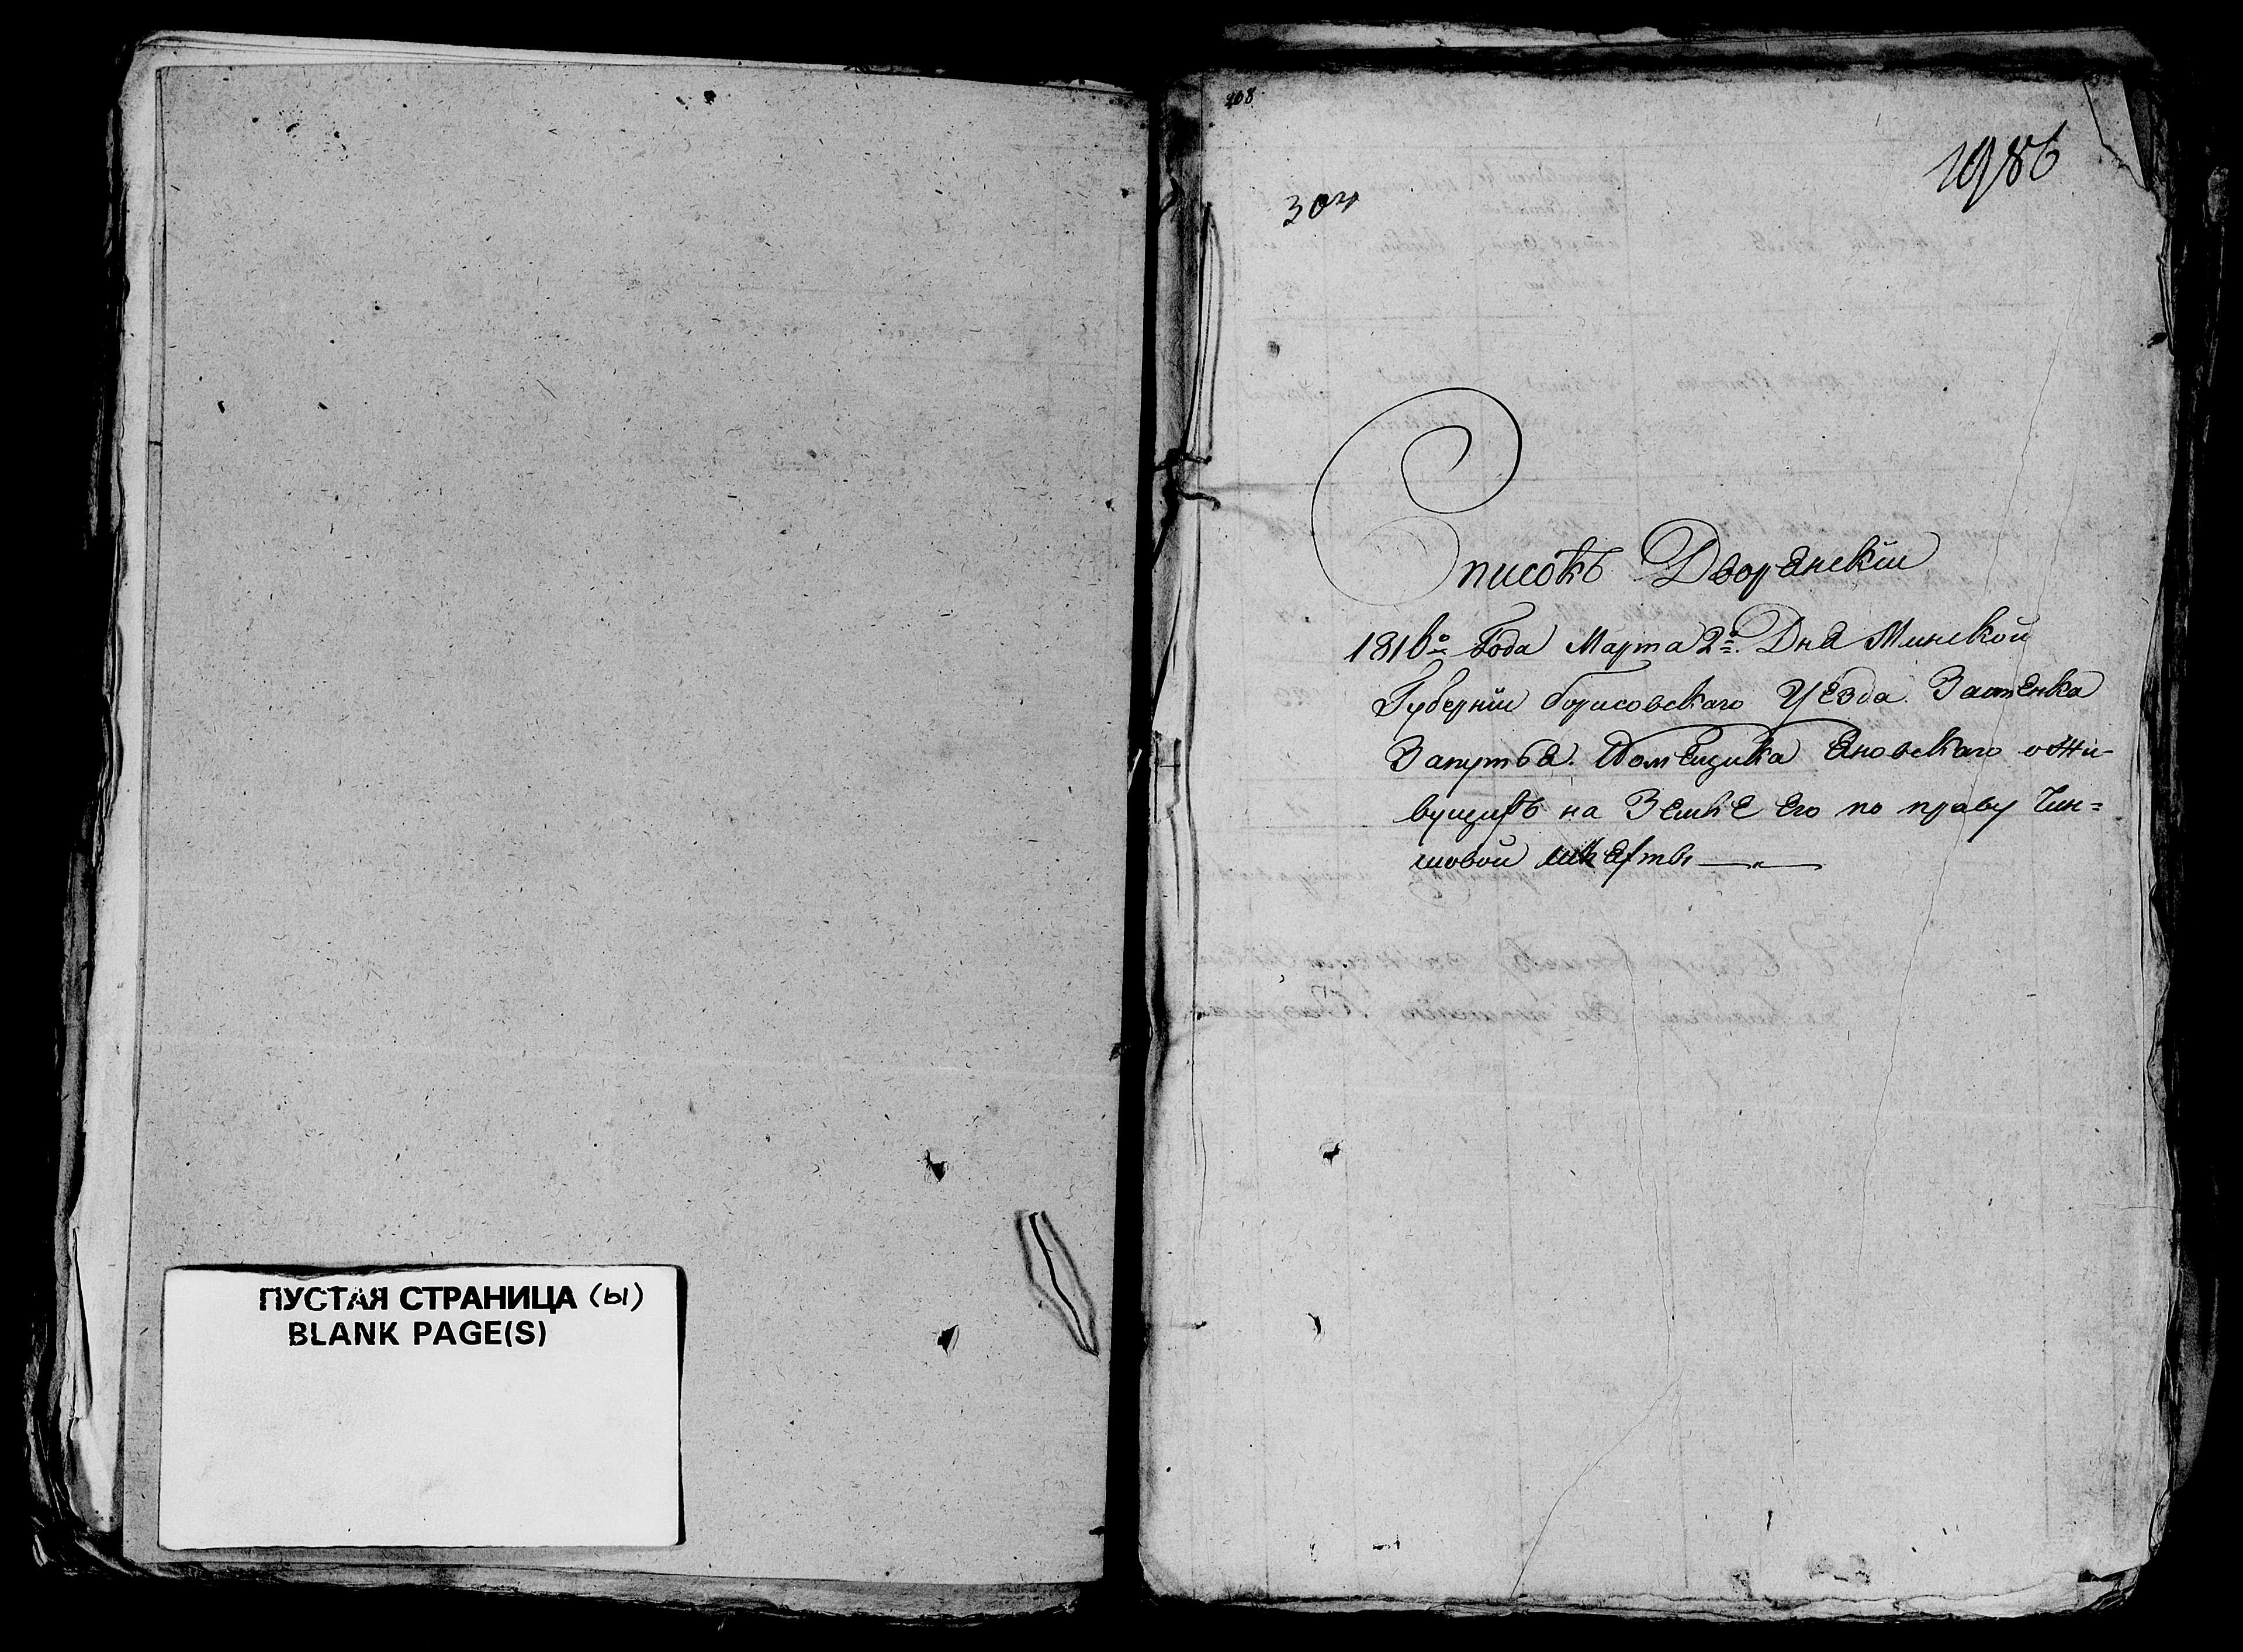 ПУСТАЯ СТРАНИЦА (ы)
BLANK PAGE(S)
408
1986
304
Списокъ Дворянскіи
1816го Года Марта 2го Дня Минской
Губерніи борисовскаго Уезда Застенка
Запутья Помещика Яновскаго о жи-
вущихъ на Земле его по праву Чин=
шовой шляхты